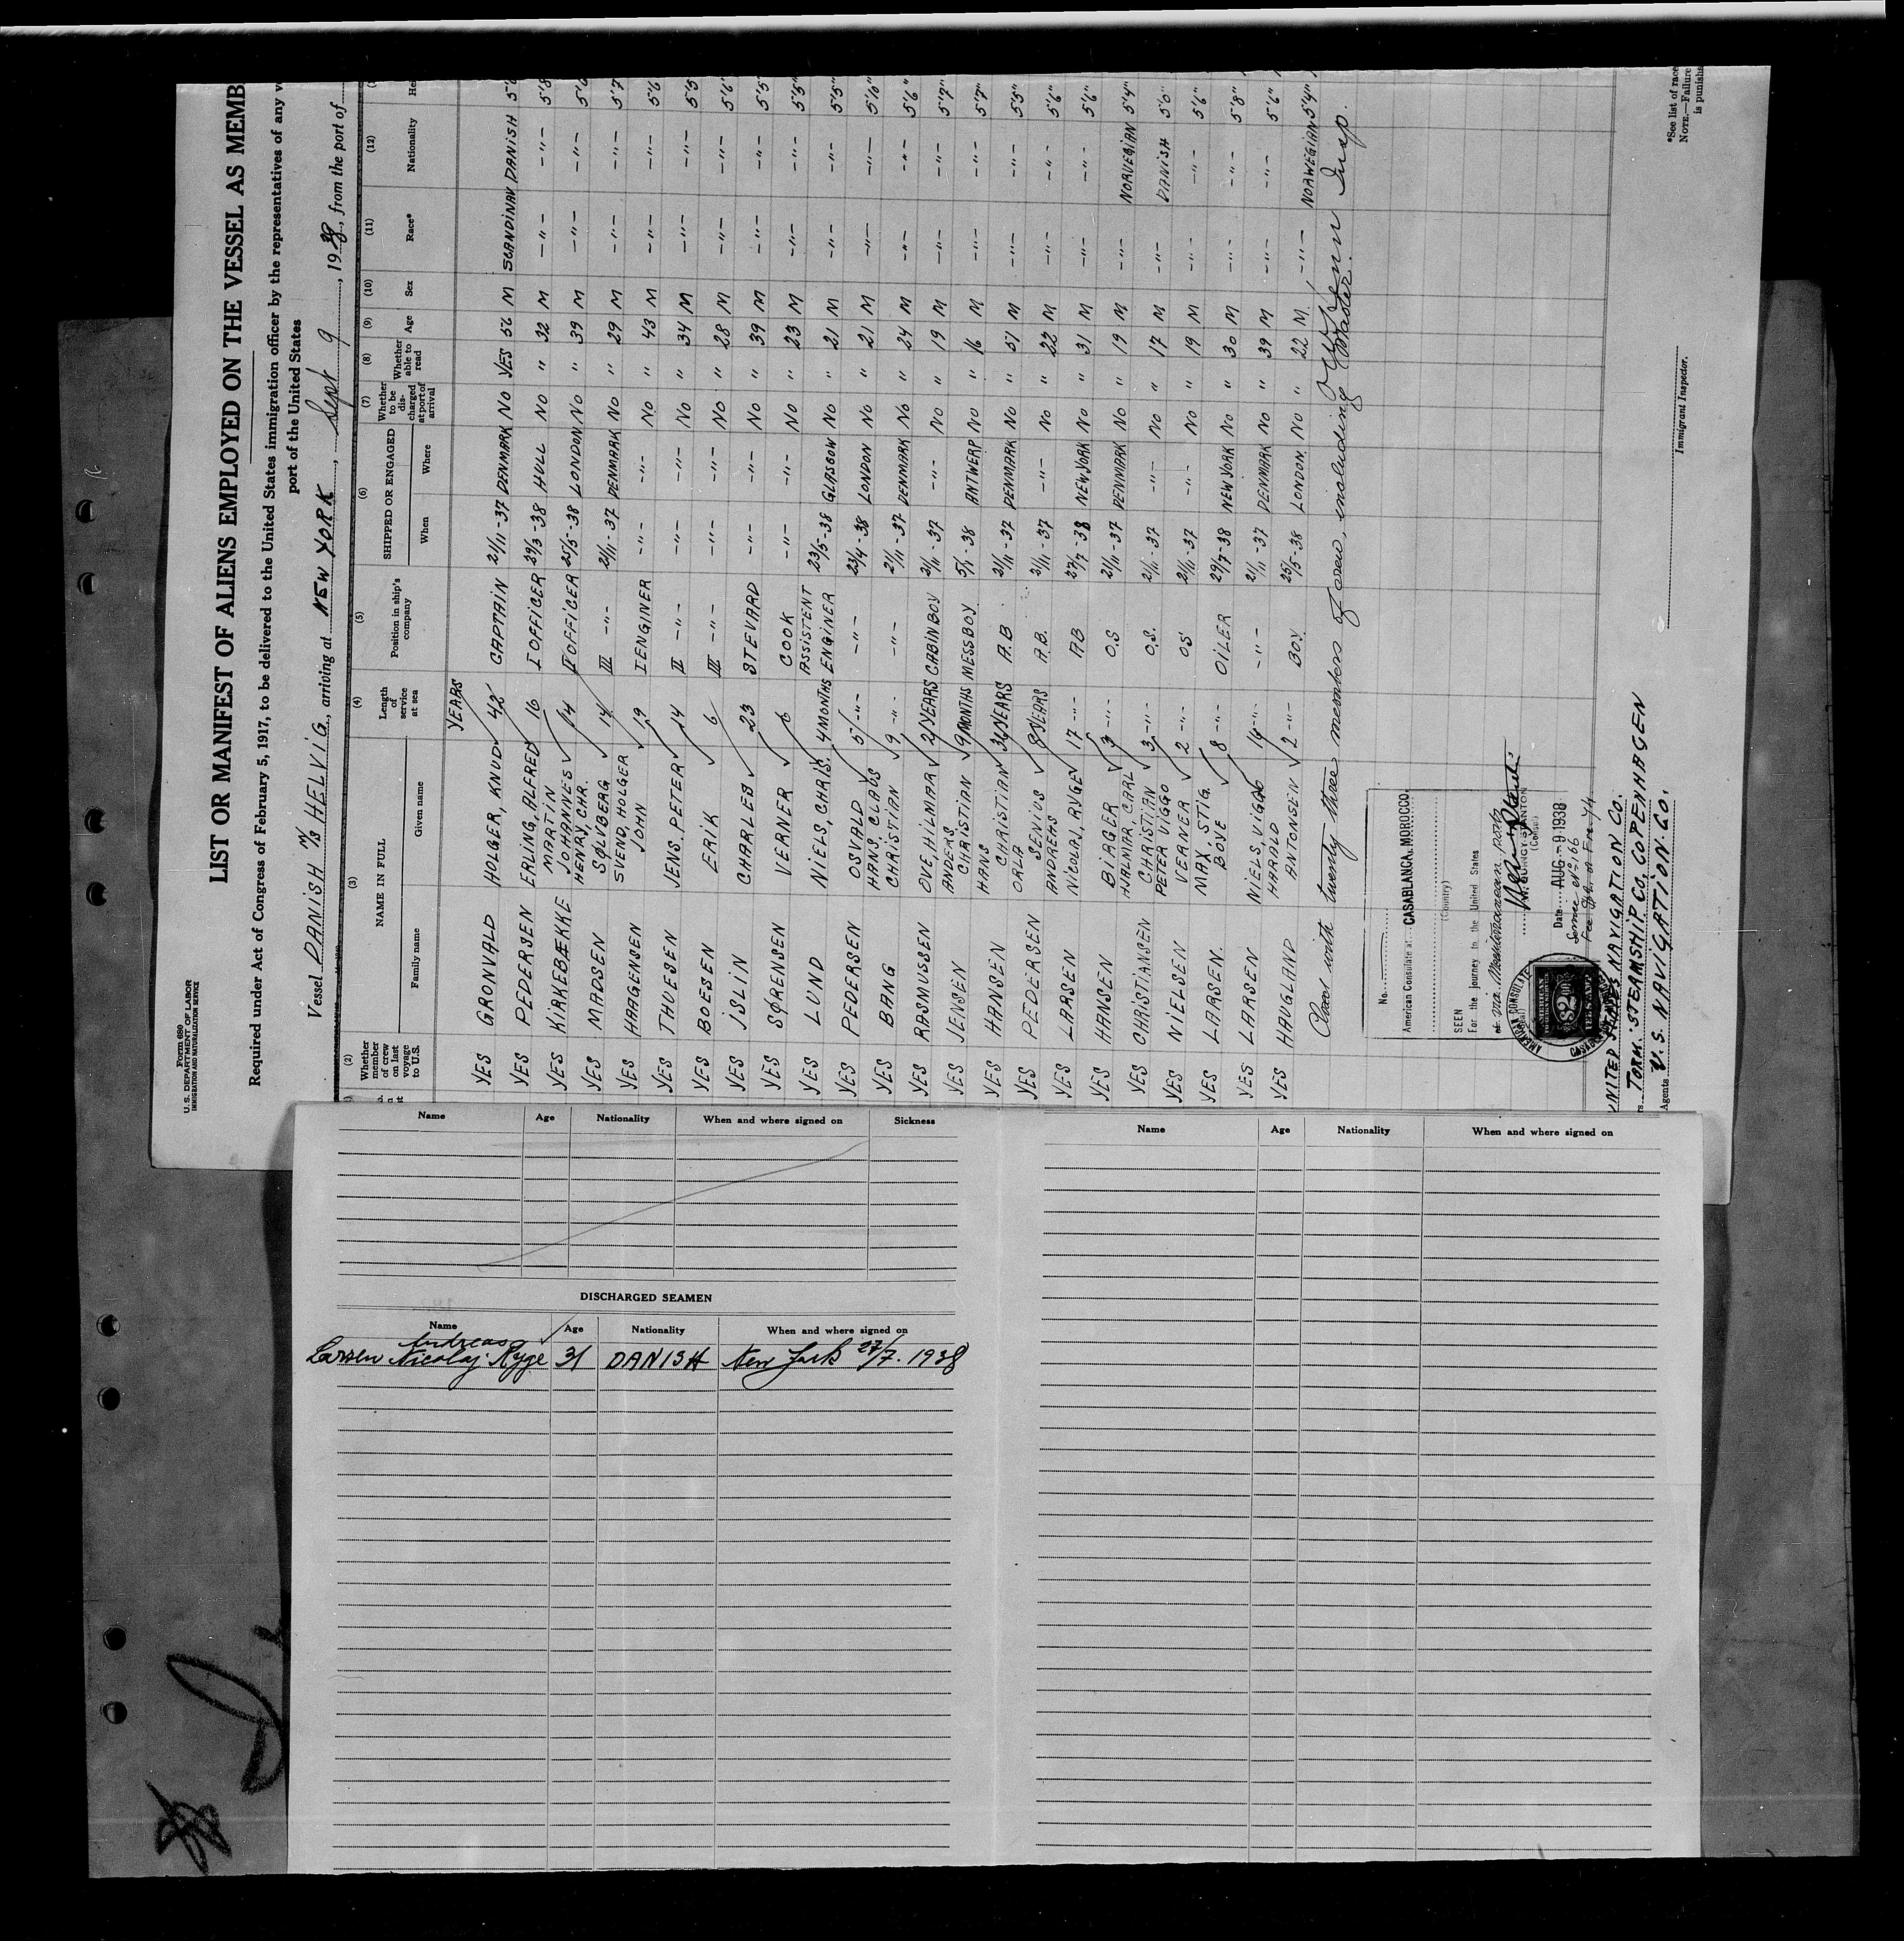 Form 680
U. S. DEPARTMENT OF LABOR
IMMIGRATION AND NATURALIZATION SERVICE
LIST OR MANIFEST OF ALIENS EMPLOYED ON THE VESSEL AS MEMB
Required under Act of Congress of February 5, 1917, to be delivered to the United States immigration officer by the representatives of any v
port of the United States
Vessel DANISH M/S HELVIG, arriving at NEW YORK, Sept 9, 1938, from the port of
(2) (3) (4) (5) (6) (7) (8) (9) (10) (11) (12)
Whether member of crew on last voyage to U.S. NAME IN FULL Family name Given name Length of service at sea Position in ship's company SHIPPED OR ENGAGED When Where Whether to be discharged at port of arrival Whether able to read Age Sex Race* Nationality He
YEARS
YES GRONVALD HOLGER, KNUD 42 CAPTAIN 21/11-37 DENMARK NO YES 56 M SCANDINAV DANISH
YES PEDERSEN ERLING, ALFRED 16 I OFFICER 29/3-38 HULL NO " 32 M -"- -"- 5'8
YES KIRKEBÆKKE MARTIN JOHANNES 14 II OFFICER 25/5-38 LONDON NO " 39 M -"- -"-
YES MADSEN HENRY, CHR. SØLVBERG 14 III -"- 21/11-37 DENMARK NO " 29 M -"- -"- 5'7
YES HAAGENSEN SVEND, HOLGER JOHN 19 I ENGINER -"- -"- NO " 43 M -"- -"- 5'6
YES THUESEN JENS, PETER 14 II -"- -"- -"- NO " 34 M -"- -"- 5'5
YES BOESEN ERIK 6 III -"- -"- -"- NO " 28 M -"- -"- 5'6"
YES ISLIN CHARLES 23 STEVARD -"- -"- NO " 39 M -"- -"- 5'5
YES SØRENSEN VERNER 6 COOK -"- -"- NO " 23 M -"- -"- 5'5"
YES LUND NIELS, CHRIS. 4 MONTHS ASSISTENT ENGINER 23/5-38 GLASGOW NO " 21 M -"- -"- 5'5"
YES PEDERSEN OSVALD 5 -"- -"- 23/4-38 LONDON NO " 21 M -"- -"-
YES BANG HANS, CLAUS CHRISTIAN 9 -"- -"- 21/11-37 DENMARK NO " 24 M -"- -"- 5'6"
YES RASMUSSEN OVE, HILMAR 2 YEARS CABINBOY 21/11-37 -"- NO " 19 M -"- -"- 5'7"
YES JENSEN ANDERS CHRISTIAN 9 MONTHS MESSBOY 5/1-38 ANTWERP NO " 16 M -"- -"- 5'7"
YES HANSEN HANS CHRISTIAN 36 YEARS A.B. 21/11-37 DENMARK NO " 51 M -"- -"- 5'5"
YES PEDERSEN ORLA SENIUS 8 YEARS A.B. 21/11-37 -"- NO " 22 M -"- -"- 5'6"
YES LARSEN ANDREAS NICOLAI, RYGE 17 -"- AB 27/7-38 NEW YORK NO " 31 M -"- -"- 5'6"
YES HANSEN BIRGER 3 -"- O.S 21/11-37 DENMARK NO " 19 M -"- NORVEGIAN 5'4"
YES CHRISTIANSEN HJALMAR, CARL CHRISTIAN 3 -"- O.S. 21/11-37 -"- NO " 17 M -"- DANISH
YES NIELSEN PETER VIGGO VERNER 2 -"- OS 21/11-37 -"- NO " 19 M -"- -"- 5'6"
YES LARSEN. MAX, STIG. BOVE 8 -"- OILER 29/7-38 NEW YORK NO " 30 M -"- -"- 5'8"
YES LARSEN NIELS, VIGGO HARALD 16 -"- -"- 21/11-37 DENMARK NO " 39 M -"- -"- 5'6"
YES HAUGLAND ANTONSEN 2 -"- BOY 25/5-38 LONDON NO " 22 M -"- NORWEGIAN 5'4"
Closed with twenty three members of crew, including Master. Insp.
No.
American Consulate at CASABLANCA, MOROCCO.
(Country)
SEEN
For the journey to the United States
via Mediterranean ports
W. QUINCY STANTON
(Consul)
Date AUG - 9 1938
Service No. 166
AMERICAN CONSULATE
AMERICAN
FOREIGN SERVICE
$2
FEE STAMP
UNITED STATES NAVIGATION CO.
TORM. STEAMSHIP CO. COPENHAGEN
Agents U. S. NAVIGATION CO.
Immigrant Inspector.
*See list of race
NOTE.—Failure
is punisha
Name Age Nationality When and where signed on Sickness
DISCHARGED SEAMEN
Name Age Nationality When and where signed on
Andreas
Larsen Nicolaj Ryge 31 DANISH New York 27/7. 1938
Name Age Nationality When and where signed on